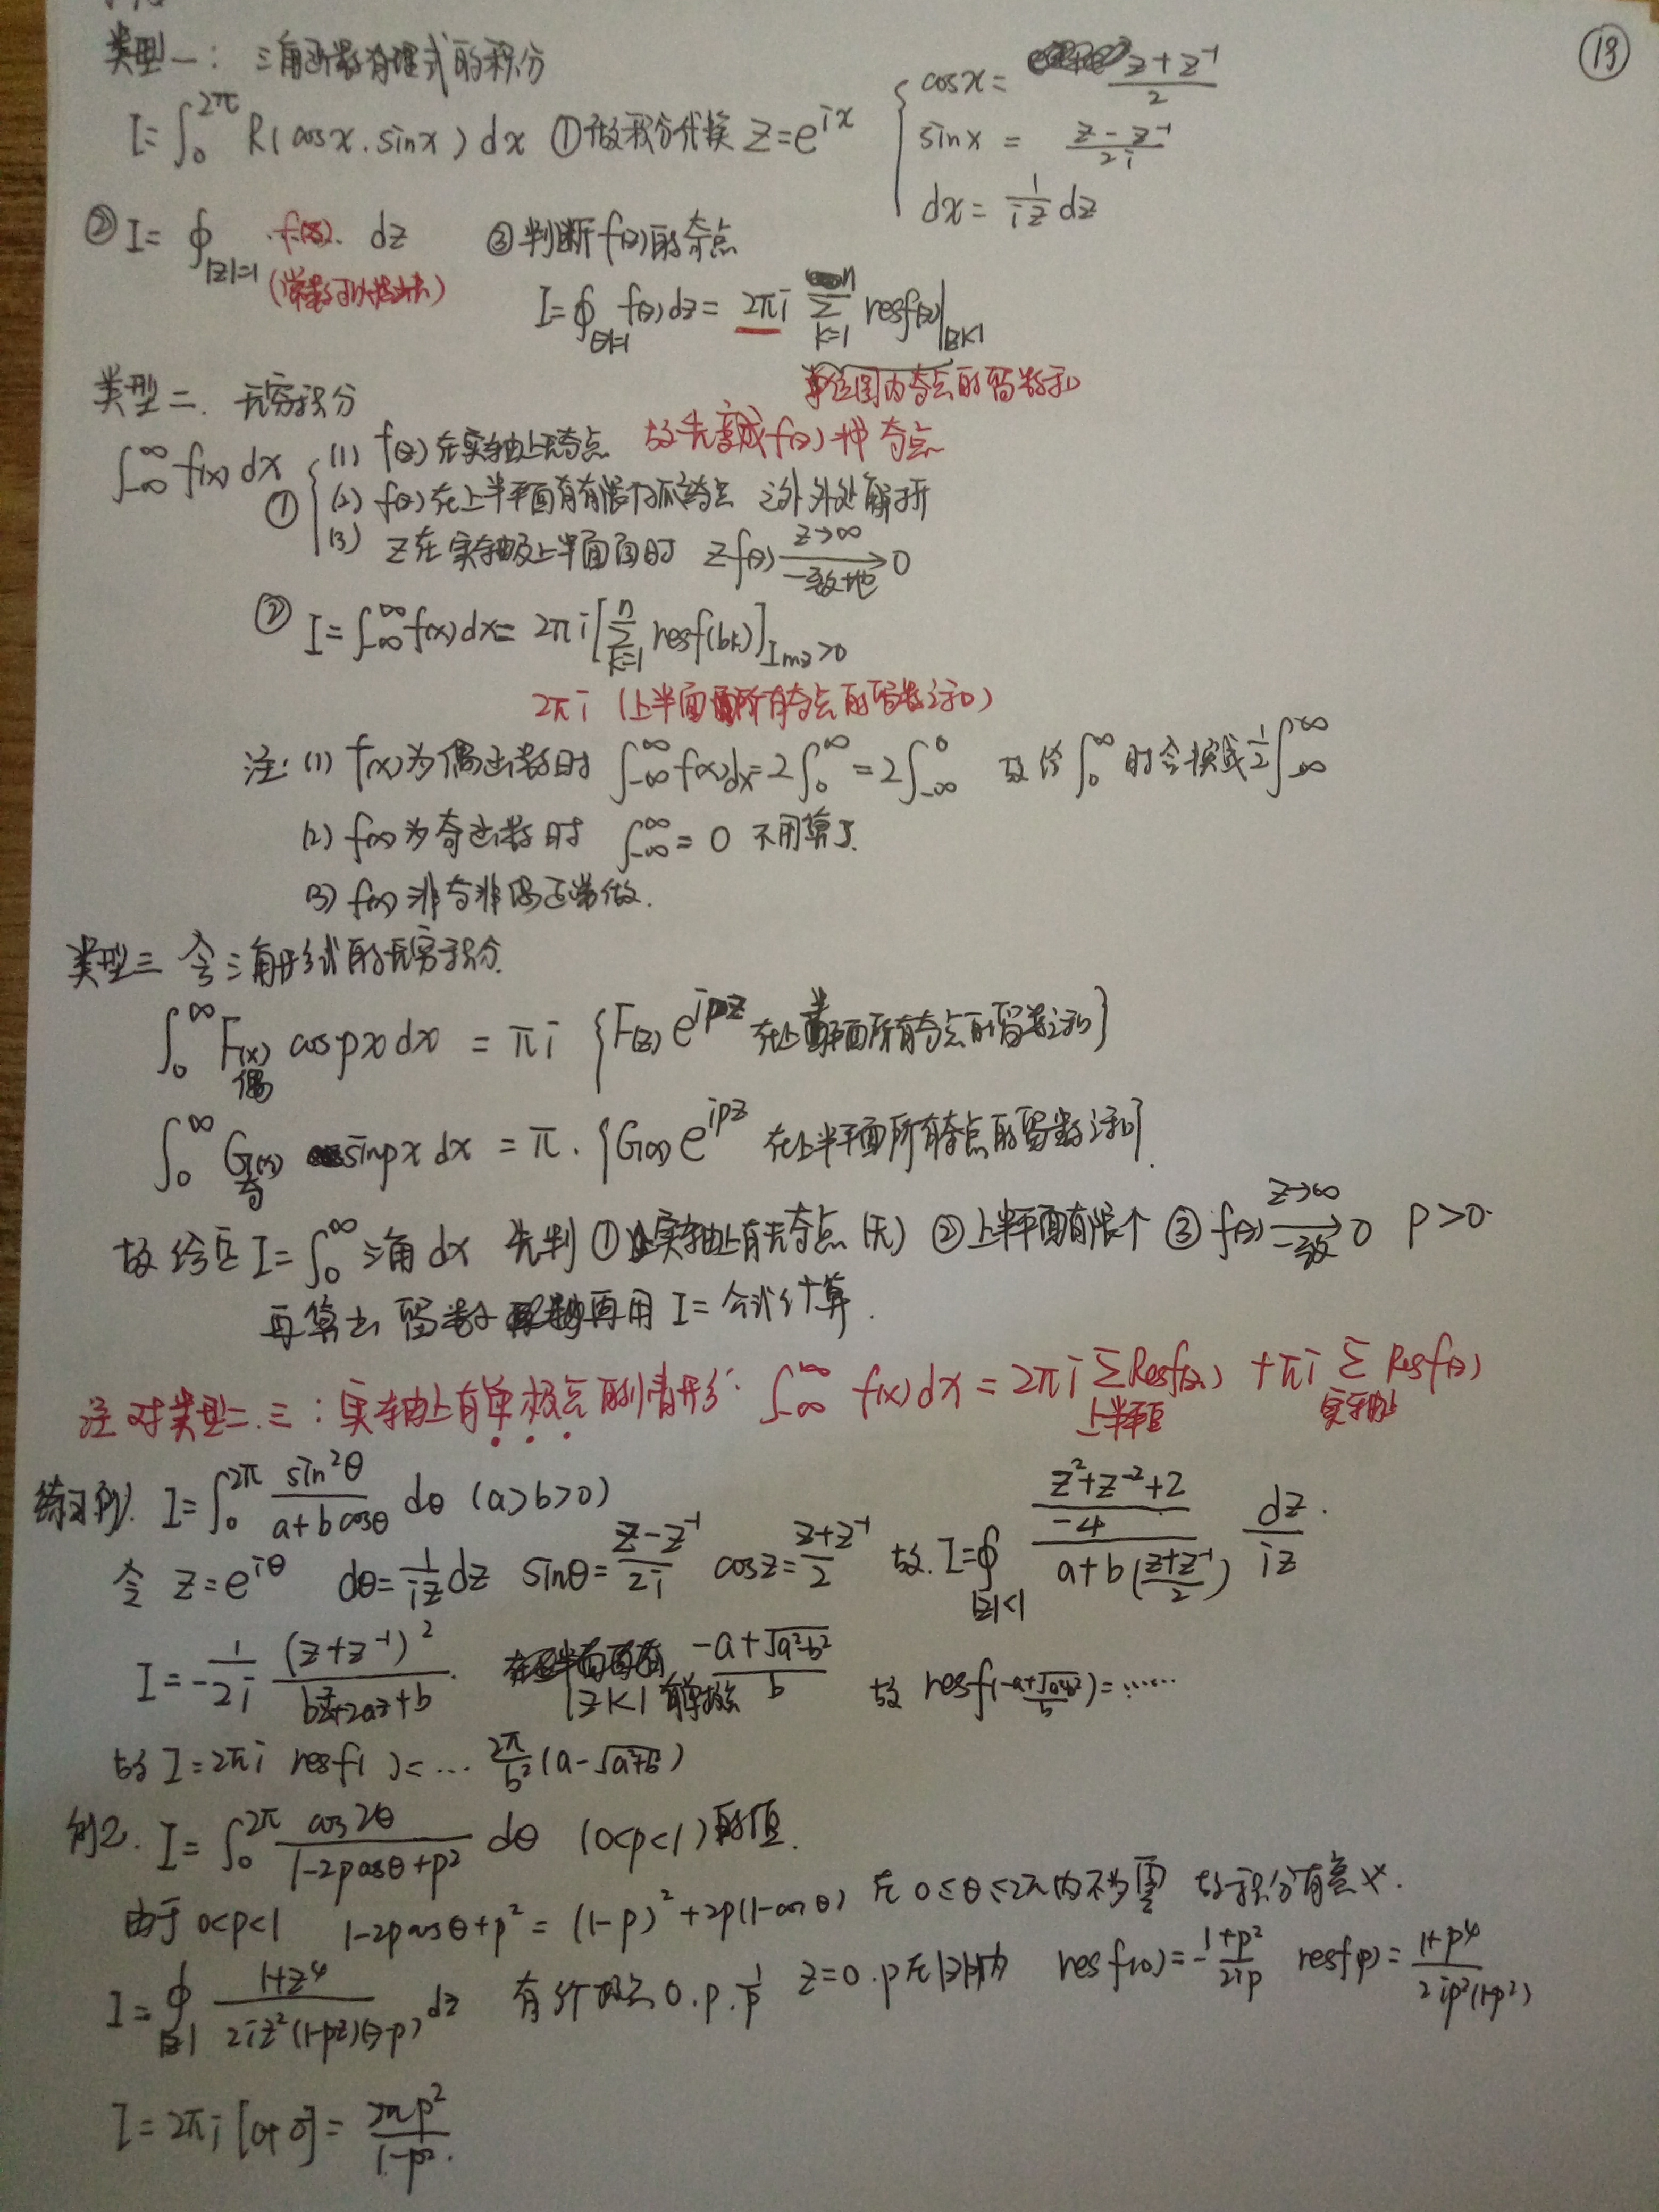 ⑲
类型一: 三角函数有理式的积分
I=∫₀^{2π} R(cosx.sinx) dx ①做积分代换 z=e^{ix} { cosx= (z+z⁻¹)/2
sinx = (z-z⁻¹)/2i
dx= 1/(iz) dz
② I= ∮_{|z|=1} f(z). dz ③判断f(z)的奇点
(常数可以提出去)
I=∮_{|z|=1} f(z)dz= 2πi Σ_{k=1}^{n} resf(z)|_{|z|<1}
单位圆内奇点的留数和
类型二. 无穷积分
故先变成f(z) 种奇点
∫_{-∞}^{∞} f(x)dx ① { (1) f(z)在实轴上无奇点
(2) f(z)在上半平面有有限个孤奇点 之外处处解析
(3) z在实轴及上半面时 zf(z) →0 (z→∞ 一致地)
② I=∫_{-∞}^{∞}f(x)dx= 2πi[Σ_{k=1}^{n} resf(bk)]_{Imz>0}
2πi (上半面所有奇点的留数之和)
注: (1) f(x)为偶函数时 ∫_{-∞}^{∞}f(x)dx=2∫₀^{∞} =2∫_{-∞}^{0} 故给∫₀^{∞} 时会换成½∫_{-∞}^{∞}
(2) f(x)为奇函数时 ∫_{-∞}^{∞}= 0 不用算了.
(3) f(x)非奇非偶正常做.
类型三 含三角形式的无穷积分.
∫₀^{∞} F(x) cospxdx = πi {F(z)e^{ipz} 在上半平面所有奇点的留数之和}
偶
∫₀^{∞} G(x) sinpx dx = π. {G(z)e^{ipz} 在上半平面所有奇点的留数之和}.
奇
故给∶ I=∫₀^{∞} 三角 dx 先判 ①实轴上有无奇点 (无) ②上半平面有限个 ③ f(z) →0 (z→∞ 一致) p>0.
再算出 留数 再用 I= 公式计算.
注 对类型二.三: 实轴上有单极点的情形: ∫_{-∞}^{∞} f(x)dx = 2πi ΣResf(z) +πi ΣResf(z)
上半平面 实轴上
练习例1. I=∫₀^{2π} sin²θ/(a+bcosθ) dθ (a>b>0)
令 z=e^{iθ} dθ=1/(iz) dz sinθ=(z-z⁻¹)/2i cosz=(z+z⁻¹)/2 故. I=∮_{|z|<1} ((z²+z⁻²+2)/-4)/(a+b((z+z⁻¹)/2)) dz/(iz).
I=-1/(2i) (z+z⁻¹)²/(bz²+2az+b). |z|<1 有单极点 (-a+√(a²-b²))/b 故 resf((-a+√(a²-b²))/b)=……
故 I=2πi resf( )=… 2π/b² (a-√(a²-b²))
例2. I=∫₀^{2π} cos2θ/(1-2pcosθ+p²) dθ (0<p<1)的值.
由于 0<p<1 1-2pcosθ+p² = (1-p)²+2p(1-cosθ) 在 0≤θ≤2π内不为零 故积分有意义.
I=∮_{|z|=1} (1+z⁴)/(2iz²(1-pz)(z-p)) dz 有3个极点 0.p.1/p z=0.p在|z|=1内 resf(0)=-(1+p²)/(2ip²) resf(p)=(1+p⁴)/(2ip²(1-p²))
I=2πi[0+0]=2πp²/(1-p²).